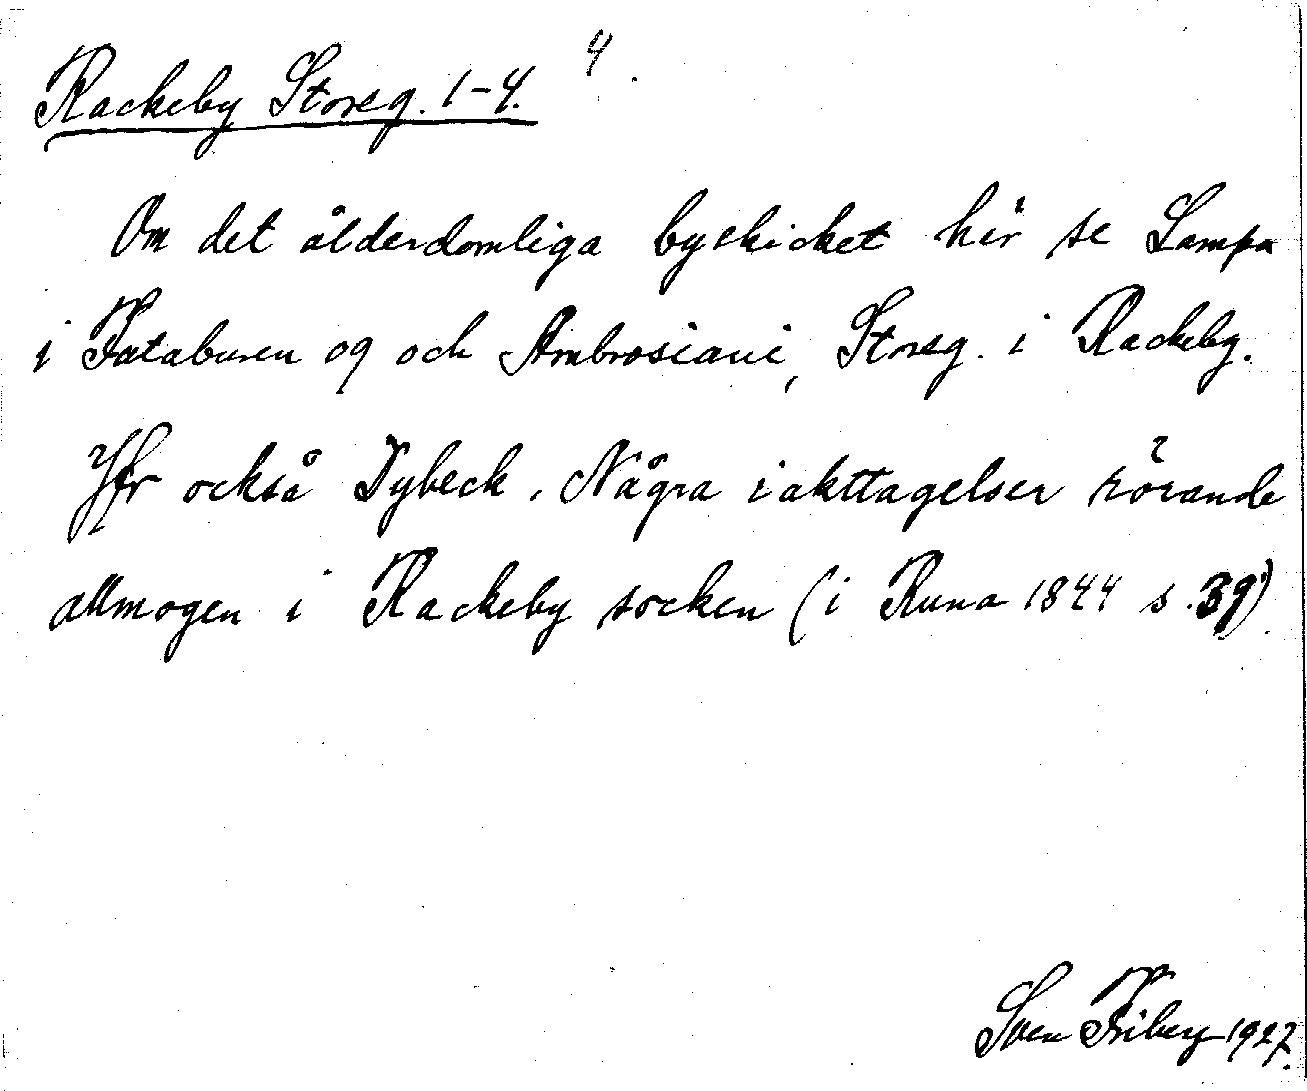 Rackeby Storeg. 1-4. 4.
Om det ålderdomliga byskicket här se Lampa
i Fataburen 09 och Ambrosiani, Storeg. i Rackeby.
Jfr också Dybeck. Några iakttagelser rörande
allmogen i Rackeby socken (i Runa 1844 s. 39)
Sven Friberg 1927.